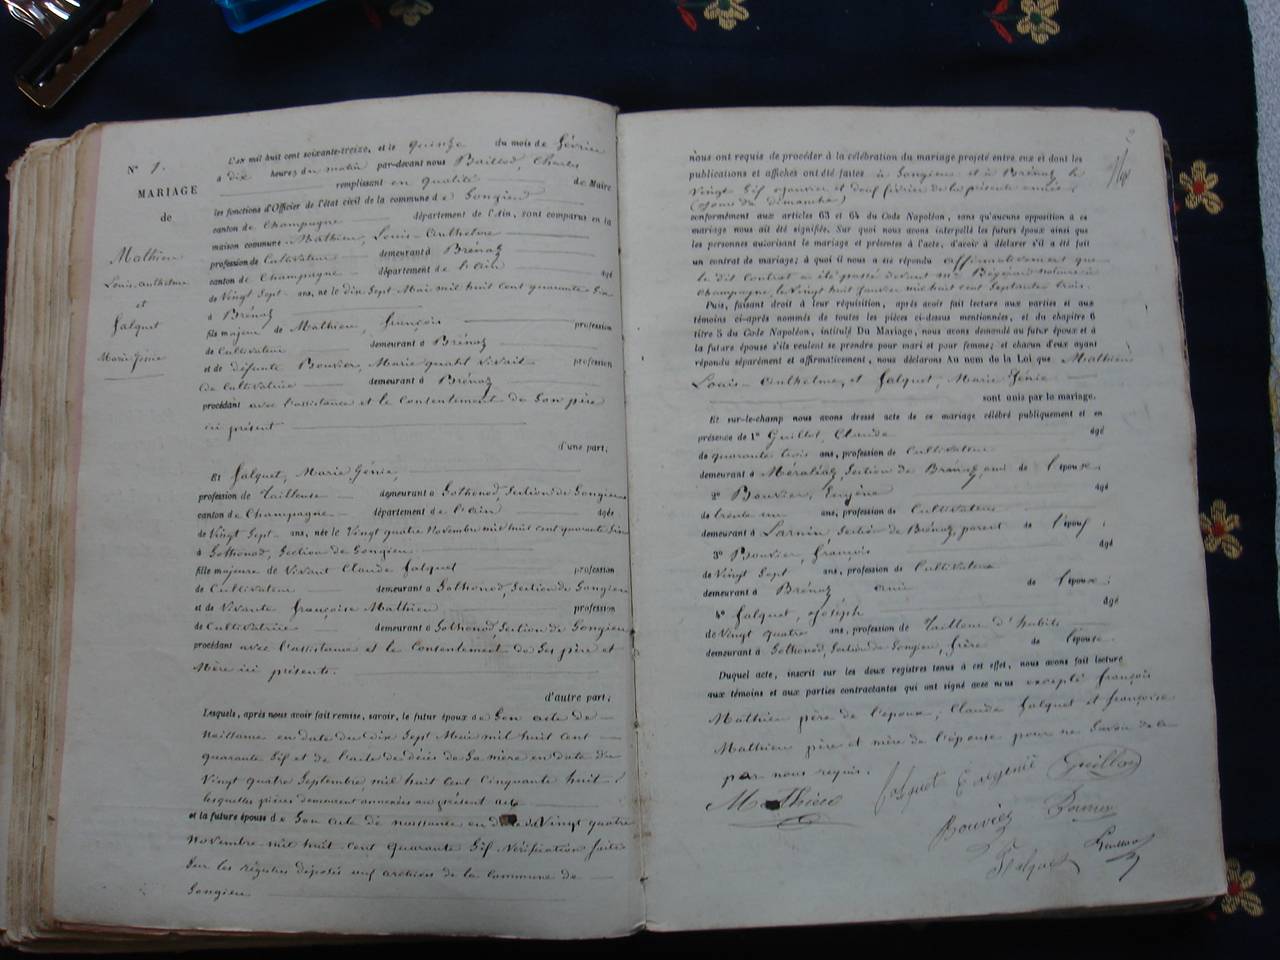 N° 1.
MARIAGE
de
Mathieu
Louis-Anthelme
et
Falquet
Marie Génie
L'an mil huit cent soixante-treize, et le quinze du mois de février
à dix heures du matin par-devant nous Baillod, Charles
remplissant en qualité de Maire
les fonctions d'Officier de l'état civil de la commune de Songieu
canton de Champagne département de l'Ain, sont comparus en la
maison commune Mathieu, Louis-Anthelme
profession de Cultivateur demeurant à Brénaz
canton de Champagne département de l'ain âgé
de Vingt Sept ans, né le dix Sept Mai mil huit cent quarante Six
à Brénaz
fils majeur de Mathieu, François profession
de Cultivateur demeurant à Brénaz
et de défunte Bouvier, Marie quand vivait profession
de Cultivatrice demeurant à Brénaz
procédant avec l'assistance et le Consentement de Son père
ici présent
d'une part;
Et Falquet, Marie Génie,
profession de Tailleuse demeurant à Gothonod, Section de Songieu
canton de Champagne département de l'ain âgée
de Vingt Sept ans, née le Vingt quatre Novembre mil huit cent quarante
à Gothonod, Section de Songieu
fille majeure de Vivant Claude Falquet profession
de Cultivateur demeurant à Gothonod, Section de Songieu
et de Vivante Françoise Mathieu profession
de Cultivatrice demeurant à Gothonod, Section de Songieu
procédant avec l'assistance et le Consentement de Ses père et
Mère ici présents.
d'autre part;
Lesquels, après nous avoir fait remise, savoir, le futur époux de Son acte de
Naissance en date du dix Sept Mai mil huit cent
quarante Six et de l'acte de décès de Sa mère en date du
Vingt quatre Septembre mil huit Cent Cinquante huit
lesquelles pièces demeurent annexées au présent acte
et la future épouse de Son acte de naissance en date du Vingt quatre
Novembre mil huit cent quarante Six Vérification faite
Sur les régistres déposés aux archives de la Commune de
Songieu
2
nous ont requis de procéder à la célébration du mariage projeté entre eux et dont les
publications et affiches ont été faites à Songieu et à Brénaz le
Vingt Six Janvier et deux février de la présente année
(jours de dimanche)
conformément aux articles 63 et 64 du Code Napoléon, sans qu'aucune opposition à ce
mariage nous ait été signifiée. Sur quoi nous avons interpellé les futurs époux ainsi que
les personnes autorisant le mariage et présentes à l'acte, d'avoir à déclarer s'il a été fait
un contrat de mariage; à quoi il nous a été répondu affirmativement que
le dit Contrat a été passé devant Me notaire à
Champagne, le Vingt huit Janvier mil huit Cent Septante trois.
Puis, faisant droit à leur réquisition, après avoir fait lecture aux parties et aux
témoins ci-après nommés de toutes les pièces ci-dessus mentionnées, et du chapitre 6
titre 5 du Code Napoléon, intitulé Du Mariage, nous avons demandé au futur époux et à
la future épouse s'ils veulent se prendre pour mari et pour femme; et chacun d'eux ayant
répondu séparément et affirmativement, nous déclarons Au nom de la Loi que Mathieu
Louis-Anthelme, et Falquet, Marie Génie
sont unis par le mariage.
Et sur-le-champ nous avons dressé acte de ce mariage célébré publiquement et en
présence de 1° Guillot, Claude âgé
de quarante trois ans, profession de Cultivateur
demeurant à Méraléaz, Section de Brénaz, ami de l'épouse.
2° Bouvier, Eugène âgé
de trente un ans, profession de Cultivateur
demeurant à Section de Brénaz, parent de l'époux;
3° Bouvier, François âgé
de Vingt Sept ans, profession de Cultivateur
demeurant à Brénaz ami de l'épouse;
4° Falquet, Joseph âgé
de Vingt quatre ans, profession de Tailleur d'habits
demeurant à Gothonod, Section de Songieu, frère de l'épouse.
Duquel acte, inscrit sur les deux registres tenus à cet effet, nous avons fait lecture
aux témoins et aux parties contractantes qui ont signé avec nous excepté François
Mathieu père de l'époux, Claude Falquet et Françoise
Mathieu père et mère de l'épouse pour ne Savoir de ce
par nous requis.
Mathieu Falquet Eugénie Guillot
Bouvier Bouvier
Falquet